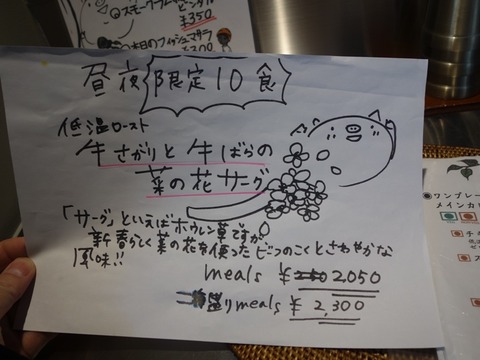 スモークラム
¥350
本日のフィッシュマサラ
昼夜 限定10食
低温ロースト
牛さがりと牛ばらの
菜の花サーグ
「サーグ」といえばホウレン草ですが、
新春らしく菜の花を使ったビーフのこくとさわやかな
風味!!
meals ¥2,050
盛りmeals ¥2,300
●ワンプレー
メインカレ